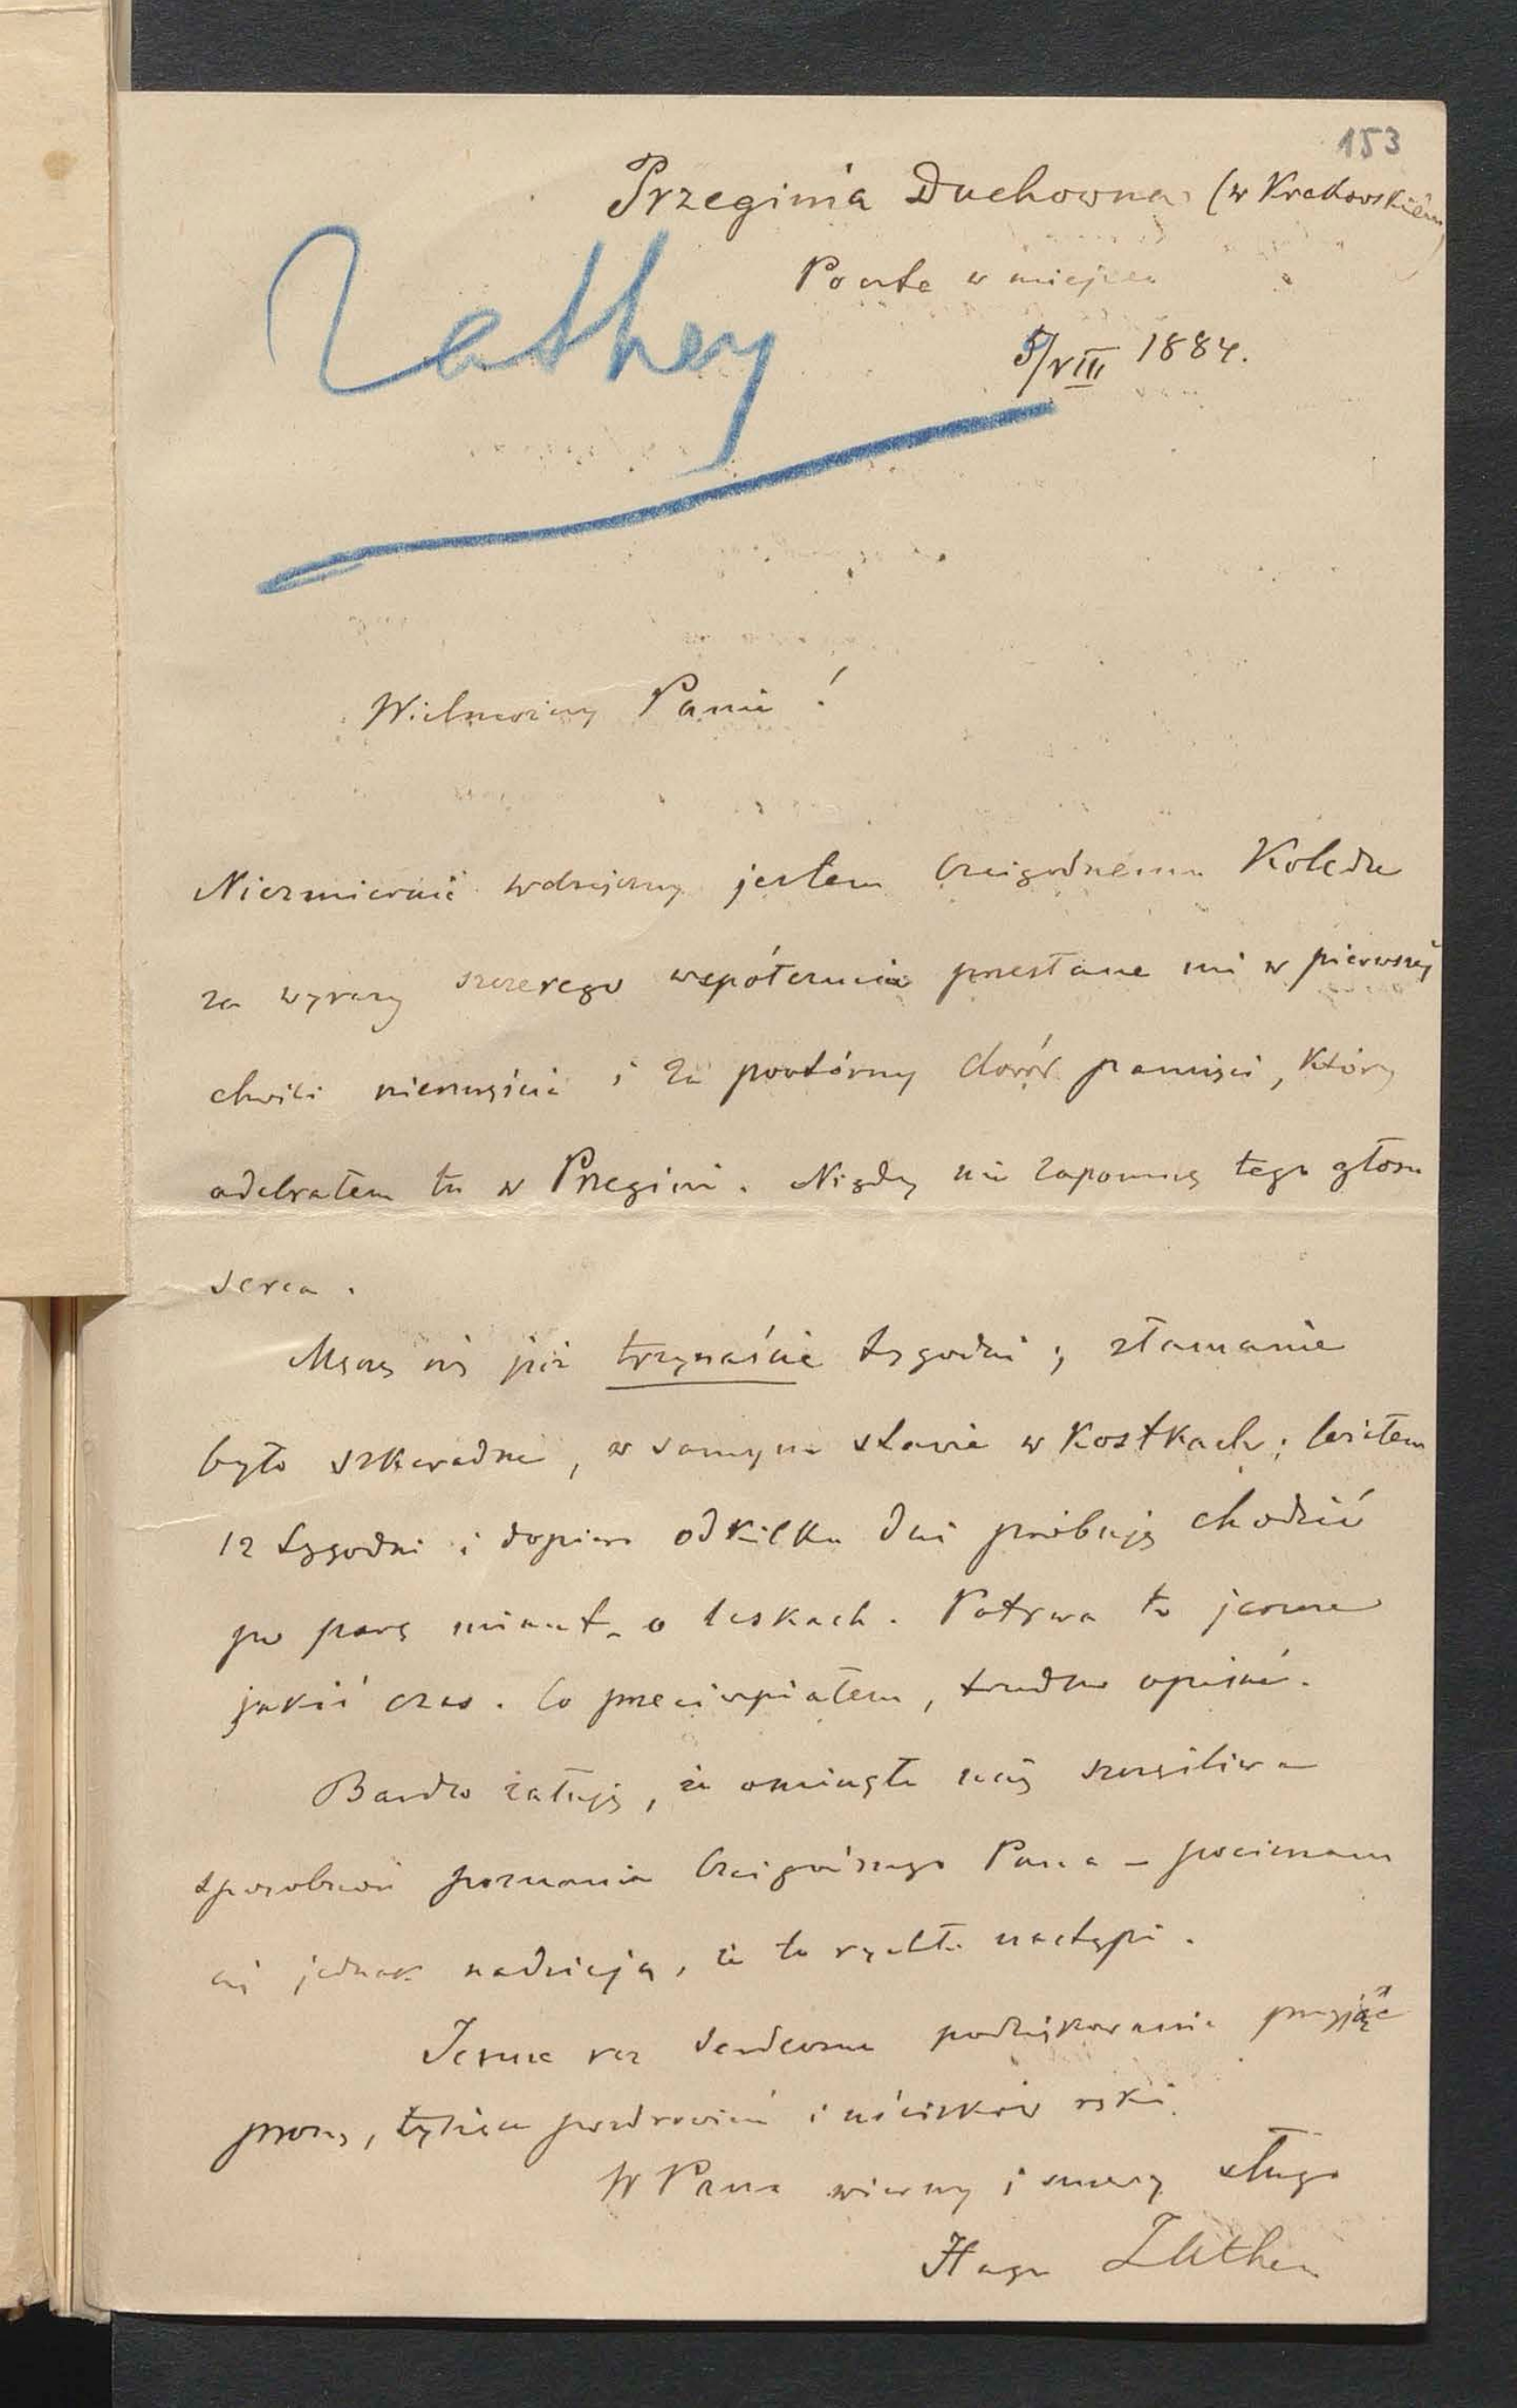 153
Przeginia Duchowna (w Krakowskiem)
Poczta w miejscu
5/VIII 1884.
Zathey
Wielmożny Panie!
Niezmiernie wdzięczny jestem Czcigodnemu Koledze
za wyrazy szczerego współczucia przesłane mi w pierwszej
chwili nieszczęścia i za powtórny dowód pamięci, który
odebrałem tu w Przegini. Nigdy nie zapomnę tego głosu
serca.
Męczę się już trzynaście tygodni; złamanie
było szkaradne, w samym stawie w kostkach; leżałem
12 tygodni i dopiero od kilku dni próbuję chodzić
po parę minut o laskach. Potrwa to jeszcze
jakiś czas. Co przecierpiałem, trudno opisać.
Bardzo żałuję, że ominęła mię szczęśliwa
sposobność poznania Czcigodnego Pana – pocieszam
się jednak nadzieją, że to rychło nastąpi.
Jeszcze raz serdeczne podziękowanie przyjąć
proszę, tysiące pozdrowień i uścisków ręki.
W Pana wierny i szczery sługa
Hugo Zathey